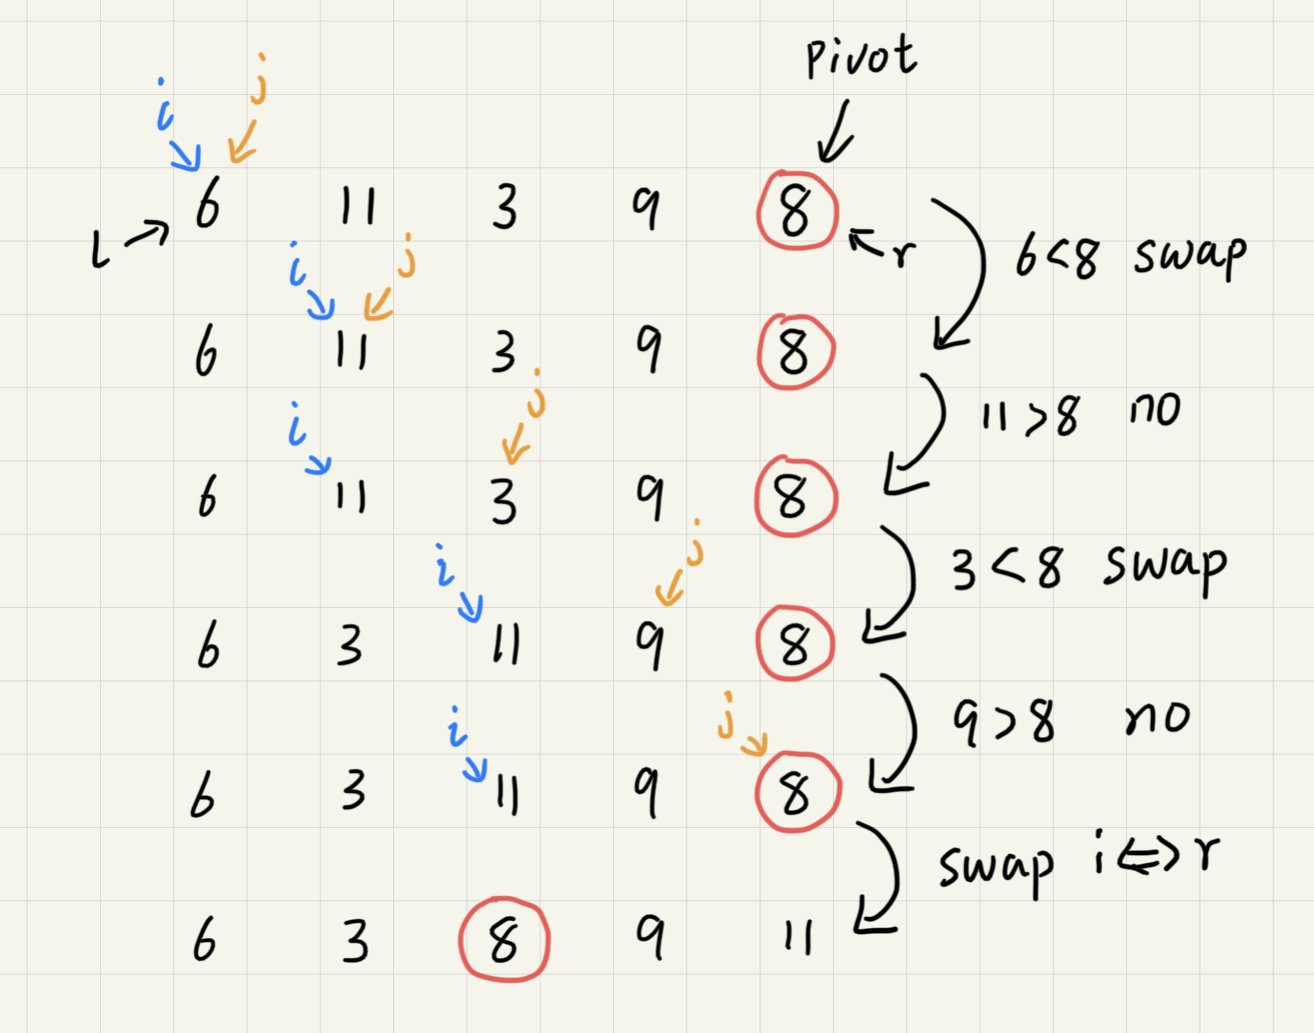 Pivot
i j
6 11 3 9 8
L r
6<8 swap
i j
6 11 3 9 8
11>8 no
i j
6 11 3 9 8
3<8 swap
i j
6 3 11 9 8
9>8 no
i j
6 3 11 9 8
swap i⇔r
6 3 8 9 11